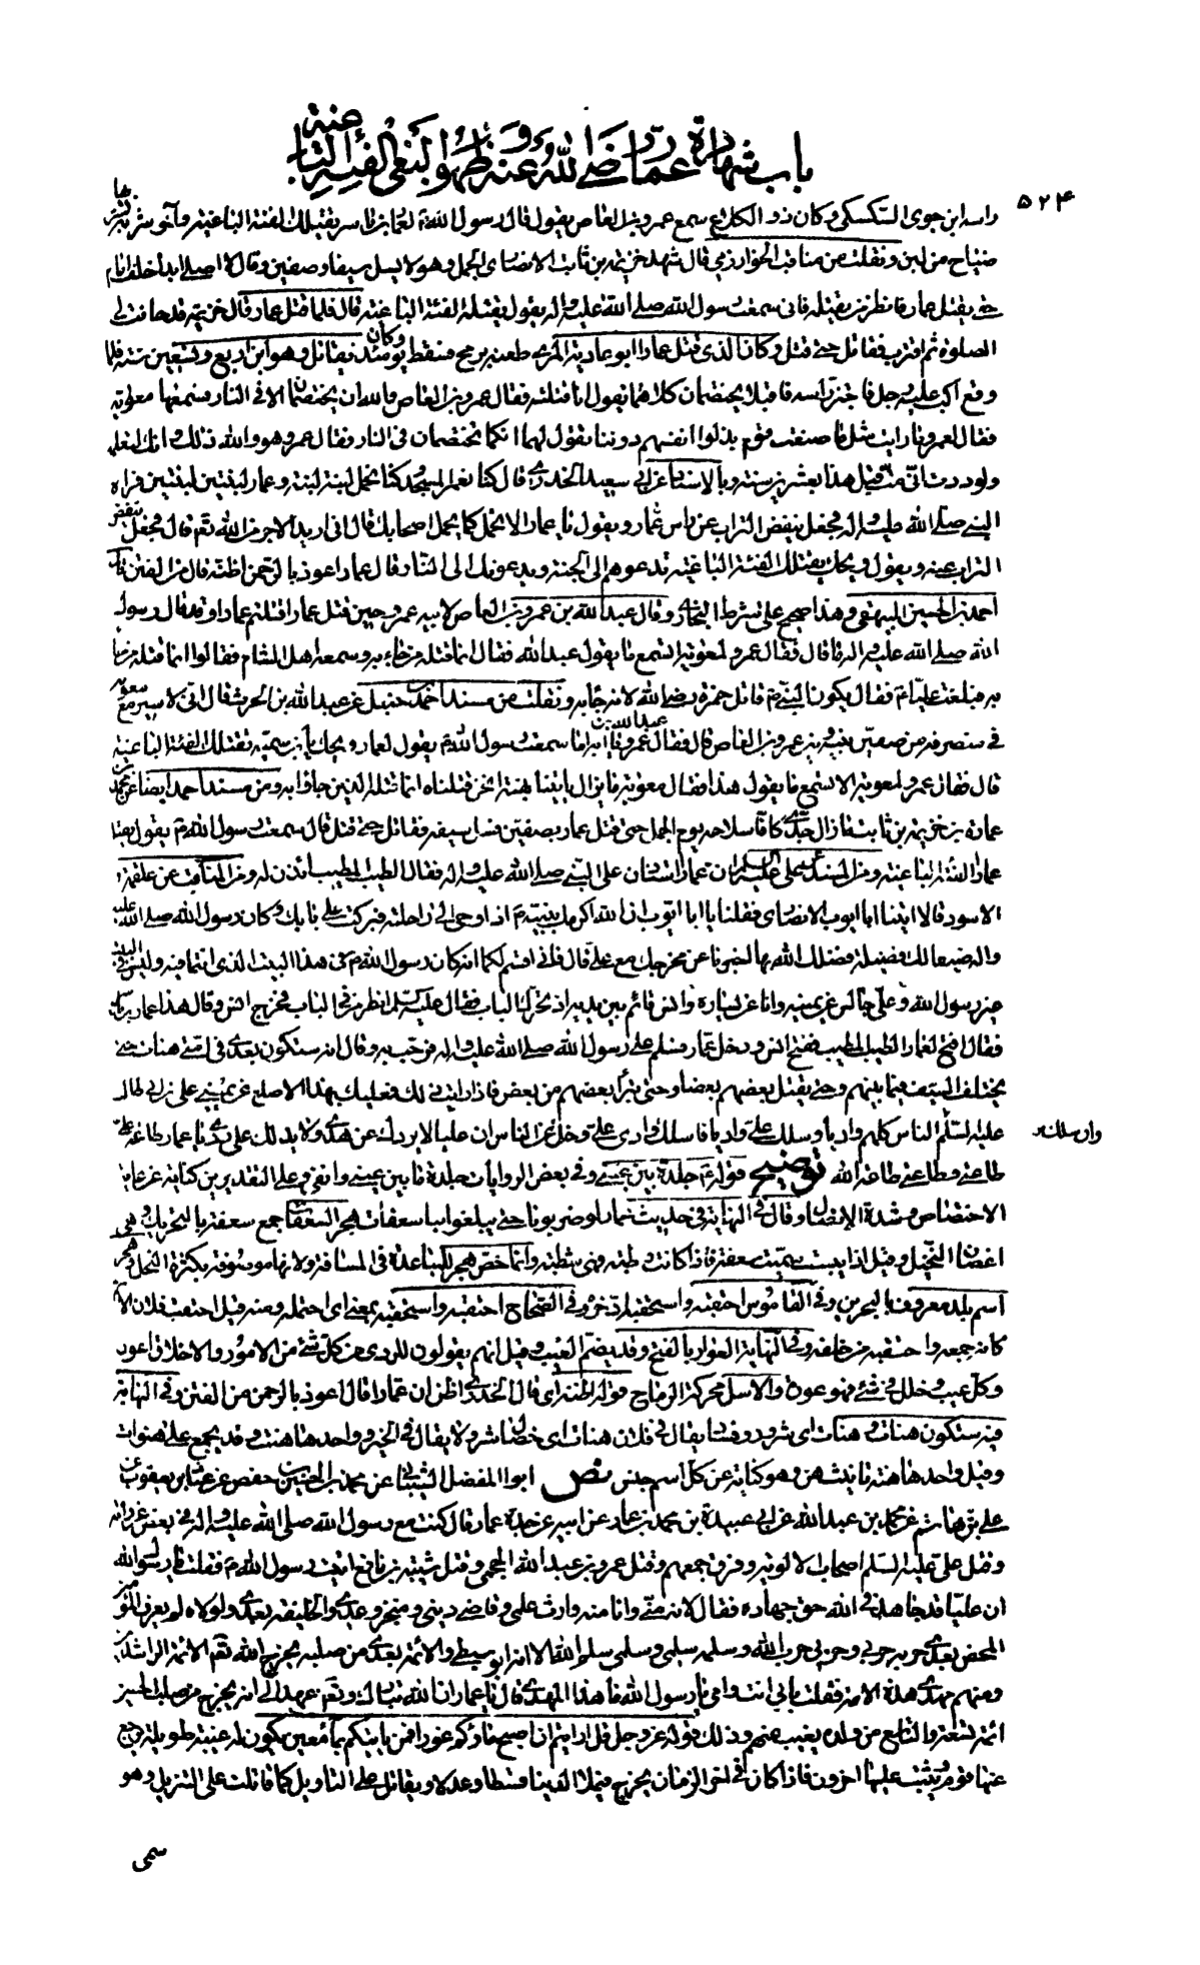 باب شهادة عمار رضي الله عنه وظهور بغي الفئة الباغية
٥٢٤
راسه ابن جوى السكسكي وكان ذو الكلاع سمع عمرو بن العاص يقول قال رسول الله ص لعمار بن ياسر يقتلك الفئة الباغية وآخر شربة تشربها
ضياح من لبن ونقلت من مناقب الخوارزمي قال شهد خزيمة بن ثابت الانصاري الجمل وهو لا يسل سيفا وصفين وقال لا اصلي ابدا خلف امام
حتى يقتل عمار فانظر من يقتله فاني سمعت رسول الله صلى الله عليه واله يقول يقتله الفئة الباغية قال فلما قتل عمار قال خزيمة قد حانت لي
الصلوة ثم اقترب فقاتل حتى قتل وكان الذي قتل عمارا ابو عادية المري طعنه برمح فسقط وكان يومئذ يقاتل وهو ابن اربع وتسعين سنة فلما
وقع اكب عليه رجل فاجتز راسه فاقبلا يختصمان كلاهما يقول انا قتلته فقال عمرو بن العاص والله ان يختصمان الا في النار فسمعها معوية
فقال لعمرو ما رايت مثل ما صنعت قوم بذلوا انفسهم دوننا تقول لهما انكما تختصمان في النار فقال عمرو هو والله ذلك وانك لتعلمه
ولوددت اني مت قبل هذا بعشرين سنة وبالاسناد عن ابي سعيد الخدري قال كنا نعمر المسجد وكنا نحمل لبنة لبنة وعمار لبنتين لبنتين فراه
النبي صلى الله عليه واله فجعل ينفض التراب عن راس عمار ويقول يا عمار الا تحمل كما يحمل اصحابك قال اني اريد الاجر من الله تعم قال فجعل ينفض
التراب عنه ويقول ويحك يقتلك الفئة الباغية تدعوهم الى الجنة ويدعونك الى النار وقال عمار اعوذ بالرحمن اظنه قال من الفتن قال
احمد بن الحسين البيهقي وهذا صحيح على شرط البخاري وقال عبد الله بن عمرو بن العاص لابيه عمرو حين قتل عمار اقتلتم عمارا وقد قال رسول
الله صلى الله عليه واله ما قال فقال عمرو لمعوية اتسمع ما يقول عبد الله فقال انما قتله من جاء به وسمعه اهل الشام فقالوا انما قتله من جاء
به فبلغت عليا ع فقال يكون النبي ص قاتل حمزة رضي الله لانه جاء به ونقلت من مسند احمد بن حنبل عن عبد الله بن الحرث قال اني لاسير مع معوية
في منصرفه من صفين بينه وبين عمرو بن العاص قال فقال عبد الله بن عمرو يا ابه اما سمعت رسول الله ص يقول لعمار ويحك يا بن سمية تقتلك الفئة الباغية
قال فقال عمرو لمعوية الا تسمع ما يقول هذا فقال معوية ما يزال ياتينا بهنة انحن قتلناه انما قتله الذين جاؤا به ومن مسند احمد ايضا عن محمد بن
عمارة بن خزيمة بن ثابت قال ما زال جدي كافا سلاحه يوم الجمل حتى قتل عمار بصفين فسل سيفه فقاتل حتى قتل قال سمعت رسول الله ص يقول يقتل
عمارا الفئة الباغية ومن المسند عن علي عليه السلم ان عمارا استاذن على النبي صلى الله عليه واله فقال الطيب المطيب ائذن له ومن المناقب عن علقمة و
الاسود قالا اتينا ابا ايوب الانصاري فقلنا يا ابا ايوب ان الله اكرمك بنبيه ص اذ اوحى الى راحلته فبركت على بابك وكان رسول الله صلى الله عليه
واله ضيفا لك فضيلة فضلك الله بها اخبرنا عن مخرجك مع علي قال فاني اقسم لكما انه كان رسول الله ص في هذا البيت الذي انتما فيه وليس في البيت
غير رسول الله وعلي جالس عن يمينه وانا عن يساره وانس قائم بين يديه اذ تحرك الباب فقال عليه السلم انظر من في الباب فخرج انس وقال هذا عمار بن ياسر
فقال افتح لعمار الطيب المطيب ففتح انس ودخل عمار فسلم على رسول الله صلى الله عليه واله فرحب به وقال انه ستكون بعدي في امتي هنات حتى
يختلف السيف فيما بينهم وحتى يقتل بعضهم بعضا وحتى يبرأ بعضهم من بعض فاذا رايت ذلك فعليك بهذا الاصلع عن يميني علي بن ابي طالب
عليه السلم وان سلك الناس كلهم واديا وسلك علي واديا فاسلك وادي علي وخل عن الناس ان عليا لا يردك عن هدى ولا يدلك على ردى يا عمار طاعة علي
طاعتي وطاعتي طاعة الله توضيح قوله ع جلدة بين عيني وفي بعض الروايات جلدة ما بين عيني وانفي وعلى التقديرين كناية عن غاية
الاختصاص وشدة الاتصال وقال في النهاية في حديث عمار لو ضربونا حتى يبلغوا بنا سعفات هجر السعفات جمع سعفة بالتحريك وهي
اغصان النخيل وقيل اذا يبست سميت سعفة فاذا كانت رطبة فهي شطبة وانما خص هجر للمباعدة في المسافة ولانها موصوفة بكثرة النخل وهجر
اسم بلد معروف بالبحرين وفي القاموس احتقبه واستحقبه ادخره وفي الصحاح احتقبه واستحقبه بمعنى اي احتمله ومنه قيل احتقب فلان الاثم
كانه جمعه واحتقبه من خلفه وفي النهاية العوار بالفتح وقد يضم العيب وقيل انهم يقولون للردي من كل شئ من الامور والاخلاق اعور
وكل عيب وخلل في شئ فهو عورة والاسل محركة الرماح قوله اظنه اي قال الخدري اظن ان عمارا قال اعوذ بالرحمن من الفتن وفي النهاية
فيه ستكون هنات وهنات اي شرور وفساد يقال في فلان هنات اي خصال شر ولا يقال في الخير وواحدها هنت وقد يجمع على هنوات
وقيل واحدها هنة تانيث هن وهو كناية عن كل اسم جنس نص ابو المفضل الشيباني عن محمد بن الحسين بن حفص عن عباد بن يعقوب عن
علي بن هاشم عن محمد بن عبد الله عن ابي عبيدة بن محمد بن عمار عن ابيه عن جده عمار قال كنت مع رسول الله صلى الله عليه واله في بعض غزواته
وقتل علي عليه السلم اصحاب الالوية وفرق جمعهم وقتل عمرو بن عبد الله الجمحي وقتل شيبة بن نافع اتيت رسول الله ص فقلت يا رسول الله
ان عليا قد جاهد في الله حق جهاده فقال لانه مني وانا منه وارث علمي وقاضي ديني ومنجز وعدي والخليفة بعدي ولولاه لم يعرف المؤمن
المحض بعدي حربه حربي وحربي حرب الله وسلمه سلمي وسلمي سلم الله الا انه ابو سبطي والائمة بعدي من صلبه يخرج الله تعم الائمة الراشدين
ومنهم مهدي هذه الامة فقلت بابي انت وامي يا رسول الله ما هذا المهدي قال يا عمار ان الله تبارك وتعم عهد الي انه يخرج من صلب الحسين
ائمة تسعة والتاسع من ولده يغيب عنهم وذلك قوله عز وجل قل ارايتم ان اصبح ماؤكم غورا فمن ياتيكم بماء معين يكون له غيبة طويلة يرجع
عنها قوم ويثبت عليها اخرون فاذا كان في اخر الزمان يخرج فيملأ الدنيا قسطا وعدلا ويقاتل على التاويل كما قاتلت على التنزيل وهو
سمي